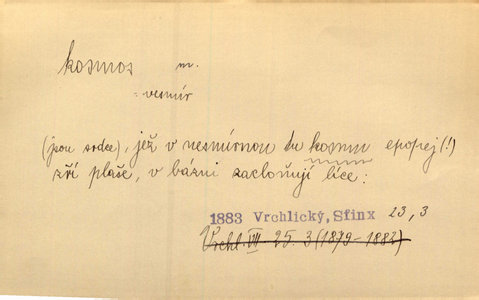 kosmos m.
= vesmír
(jsou srdce), jež v nesmírnou tu kosmu epopej (!)
zří plaše, v bázni zacloňují líce:
1883 Vrchlický, Sfinx 23, 3
Vrchl. VII 25. 3 (1879–1882)